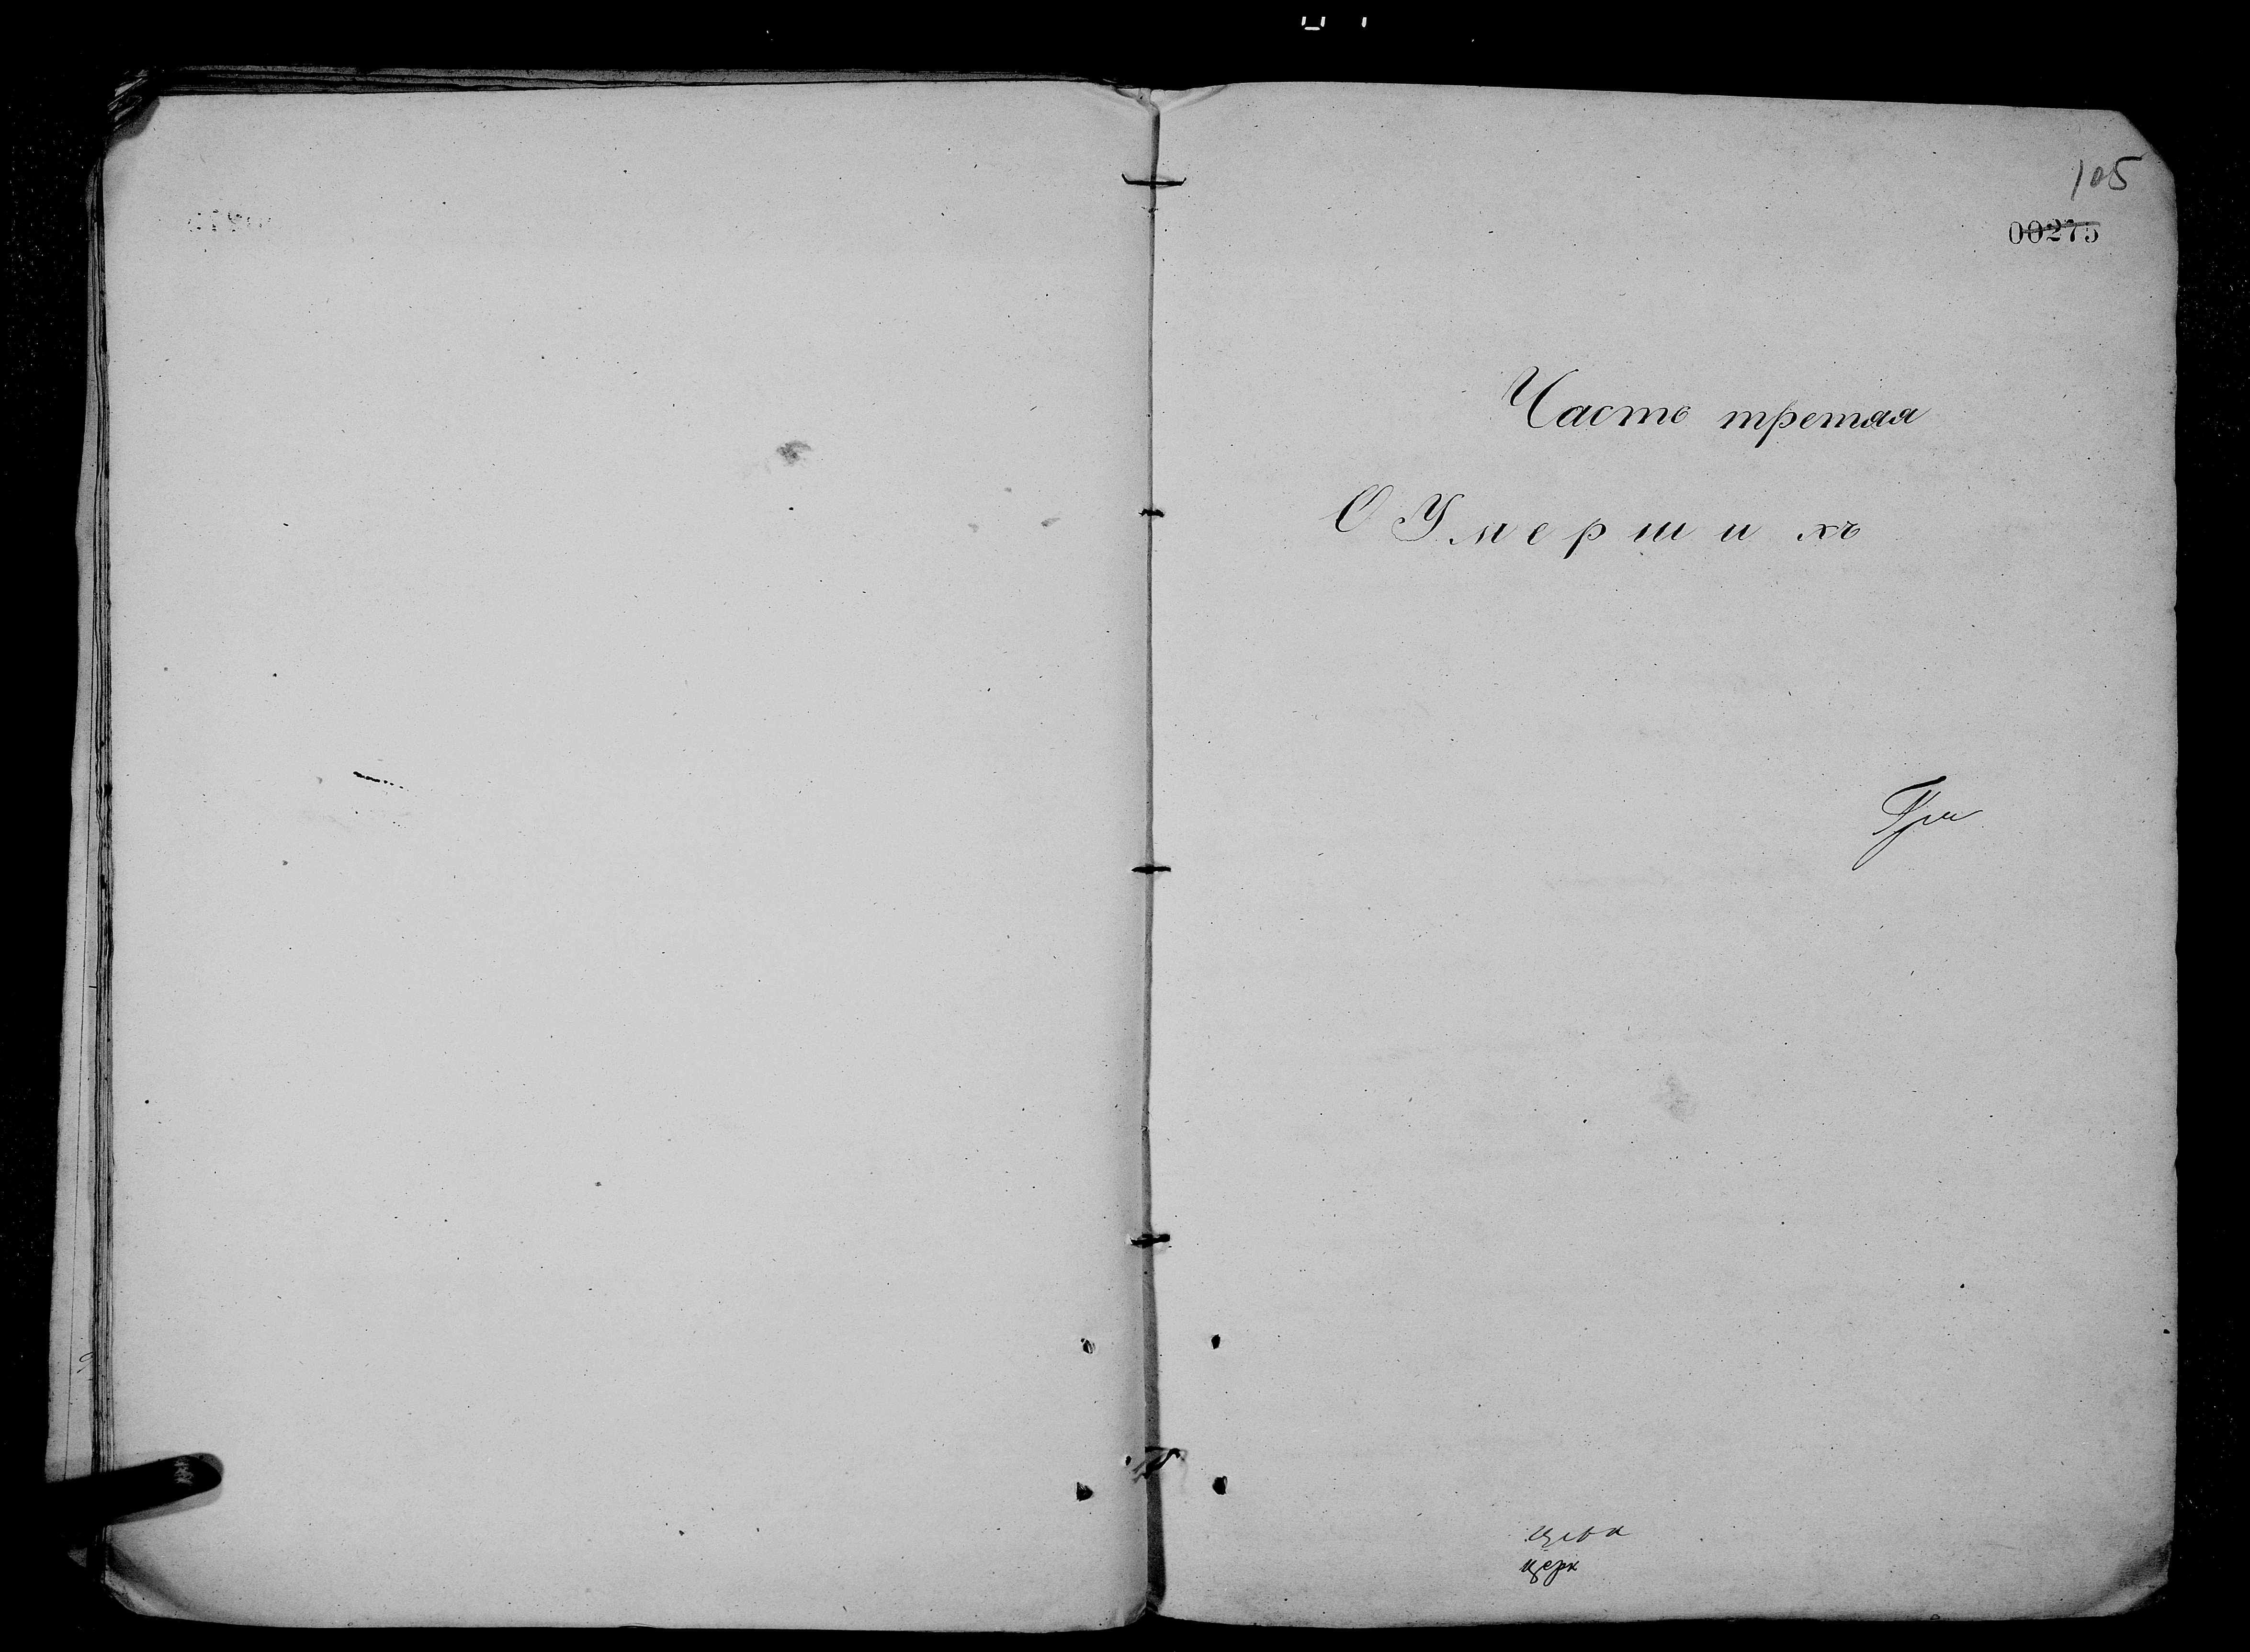 105
00275
Часть третая
О Умершихъ
церк